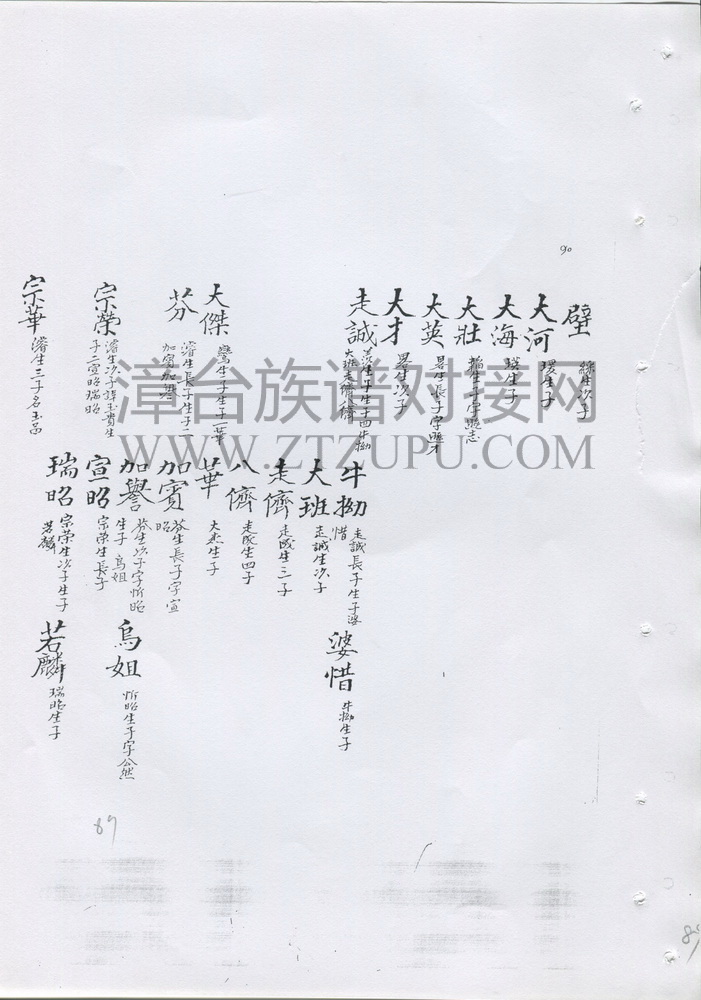 90
壁 綵生次子
大河 瑷生子
大海 瑛生子
大壯 生子字熙志
大英 晃生長子字熙才
大才 晃生次子
走誠 生子生子四牛拗
大班走儕八儕
大傑 鸞生子生子一華
芬 濬生長子生子二
加賓加譽
宗榮 濬生次子諱玉貴生
子二宣昭瑞昭
宗華 濬生三子名玉
牛拗 走誠長子生子婆
惜
大班 走誠生次子
走儕 走誠生三子
八儕 走誠生四子
華 大杰生子
加賓 芬生長子字宣
昭
加譽 芬生次子字忻昭
生子 烏姐
宣昭 宗荣生長子
瑞昭 宗荣生次子生子
若麟
婆惜 牛拗生子
烏姐 忻昭生子字公然
若麟 瑞昭生子
漳台族谱对接网
WWW.ZTZUPU.COM
89
89